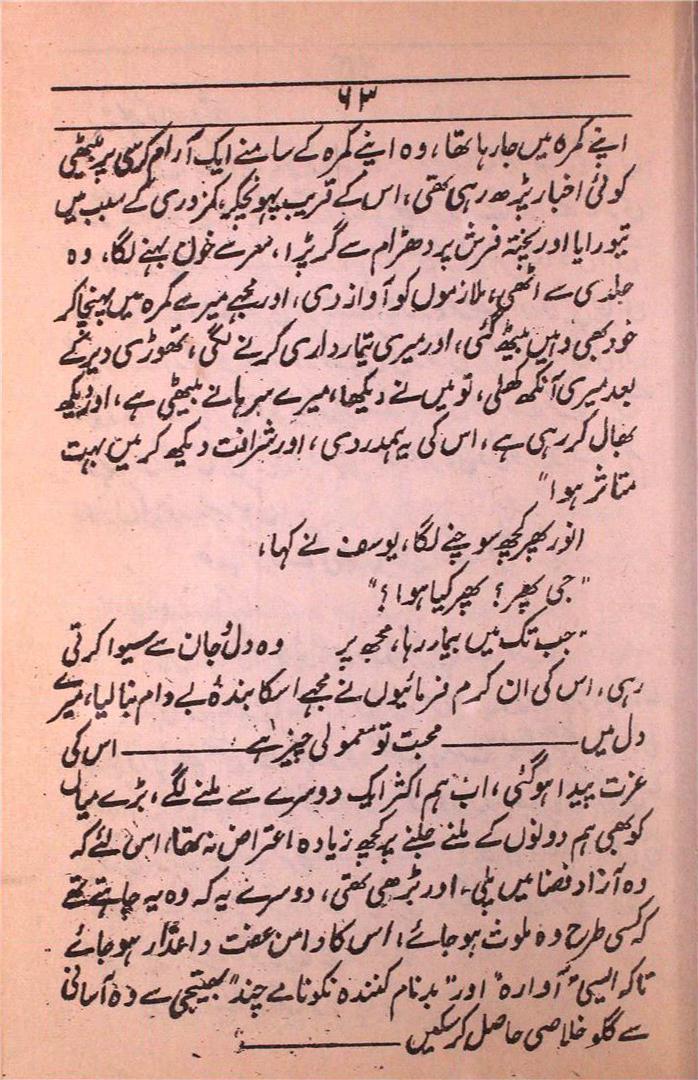 ۶۳
اپنے کمرہ میں جا رہا تھا، وہ اپنے کمرہ کے سامنے ایک آرام کرسی پر بیٹھی
کوئی اخبار پڑھ رہی تھی، اس کے قریب پہونچکر، کمزوری کے سبب میں
تیورایا اور پختہ فرش پر دھڑام سے گر پڑا، سر سے خون بہنے لگا، وہ
جلدی سے اٹھی، ملازموں کو آواز دی، اور مجھے میرے کمرہ میں پہنچا کر
خود بھی وہیں بیٹھ گئی، اور میری تیمارداری کرنے لگی، تھوڑی دیر کے
بعد میری آنکھ کھلی، تو میں نے دیکھا، میرے سرہانے بیٹھی ہے، اور دیکھ
بھال کر رہی ہے، اس کی یہ ہمدردی، اور شرافت دیکھ کر میں بہت
متاثر ہوا"
انور پھر کچھ سوچنے لگا، یوسف نے کہا،
"جی پھر؟ پھر کیا ہوا؟"
"جب تک میں بیمار رہا، مجھ پر وہ دل و جان سے سیوا کرتی
رہی، اس کی ان کرم فرمائیوں نے مجھے اسکا بندۂ بے دام بنا لیا، میرے
دل میں ——— محبت تو معمولی چیز ہے ——— اس کی
عزت پیدا ہو گئی، اب ہم اکثر ایک دوسرے سے ملنے لگے، بڑے میاں
کو بھی ہم دونوں کے ملنے جلنے پر کچھ زیادہ اعتراض نہ تھا، اس لئے کہ
وہ آزاد فضا میں پلی، اور بڑھی تھی، دوسرے یہ کہ وہ یہ چاہتے تھے
کہ کسی طرح وہ ملوث ہو جائے، اس کا دامن عفت داغدار ہو جائے
تاکہ ایسی "آوارہ" اور "بدنام کنندہ نکو نامے چند" بھتیجی سے وہ آسانی
سے گلو خلاصی حاصل کر سکیں ———